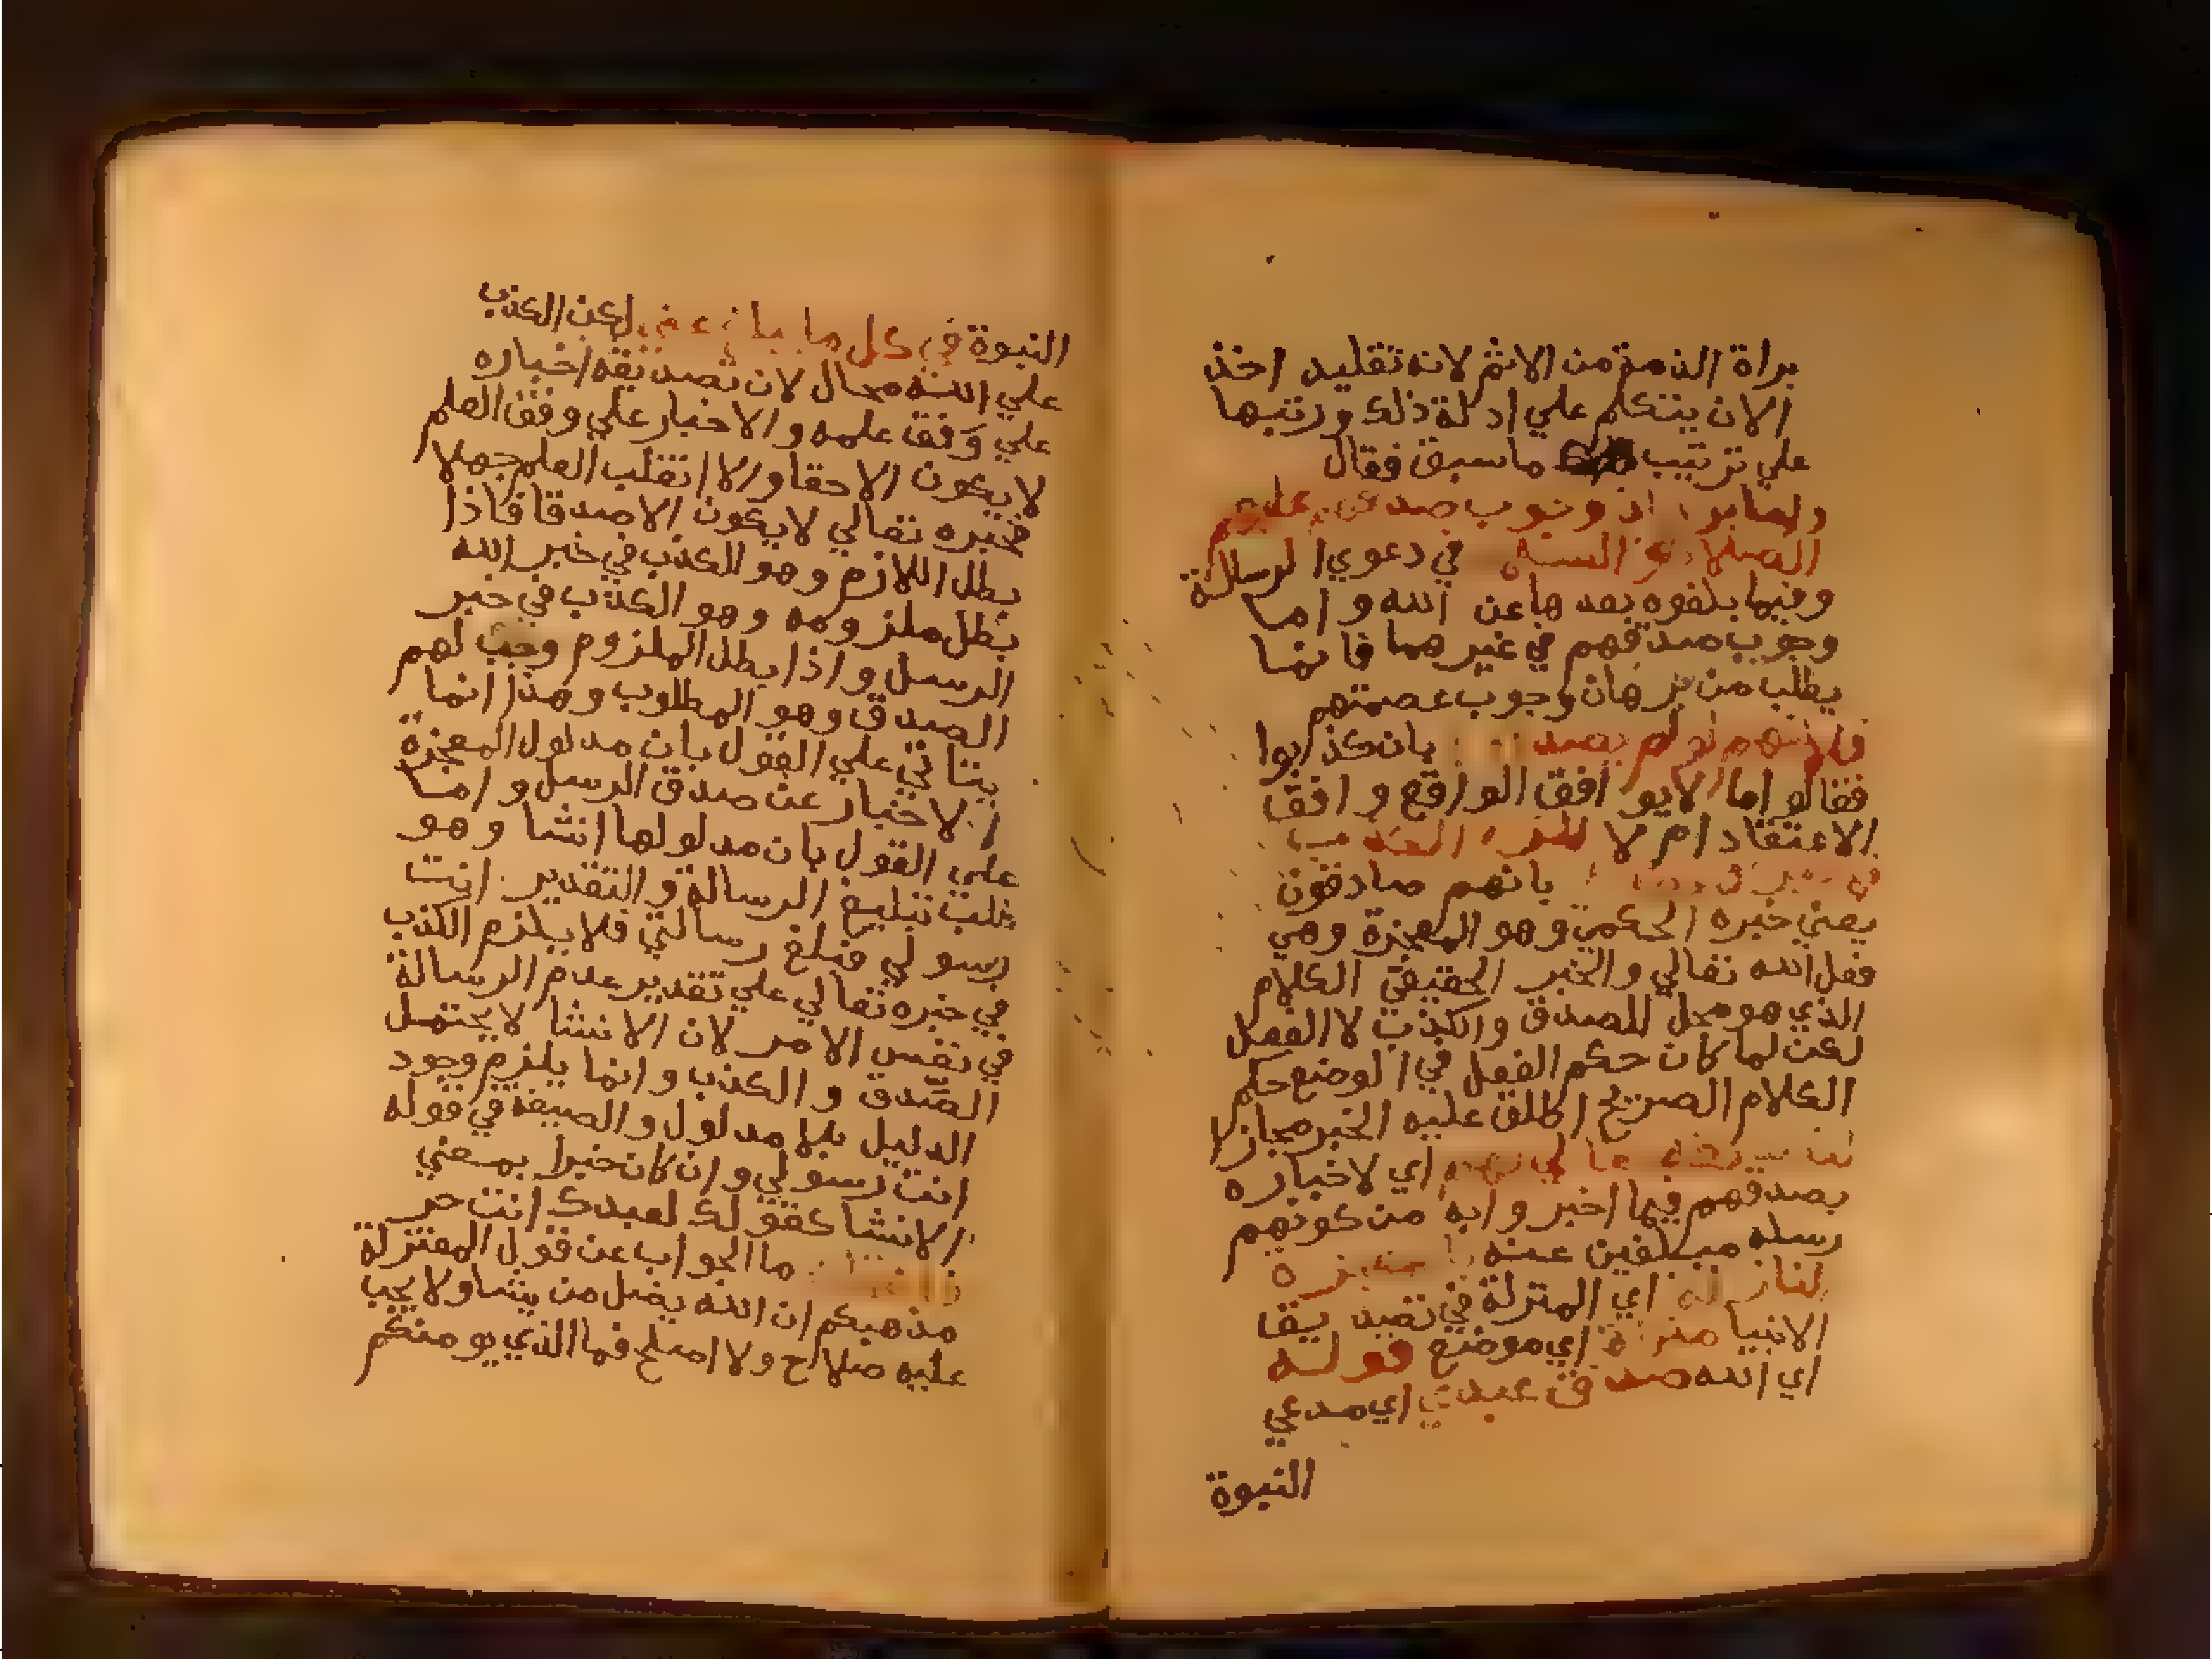 براة الذمة من الاثم لانه تقليد اخذ
الان يتكلم علي ادلة ذلك ورتبها
علي ترتيب ما سبق فقال
واما برهان وجوب صدقهم عليهم
الصلاة والسلام في دعوي الرسالة
وفيما بلغوه بعدها عن الله واما
وجوب صدقهم في غير هما فانما
يطلب من برهان وجوب عصمتهم
فلانهم لو لم يصد بان كذابوا
فقالو اما لايو افق الواقع وافق
الاعتقاد ام لا للزم الكذب
في بانهم صادقون
يعني خبره الحكمي وهو المعجزة وهي
فعل الله تعالي والخبر الحقيقي الكلام
الذي هو محل للصدق والكذب لا الفعل
لكن لما كان حكم الفعل في الوضع حكم
الكلام الصريح اطلق عليه الخبر مجازا
تعالي لهم اي لاخباره
بصدقهم فيما اخبر وابه من كونهم
رسله مبلغين عنه بالمعجزة
النازلة اي المنزلة في تصديقا
الانبيا منزلة اي موضع قوله
اي الله صدق عبدي اي مدعي
النبوة
النبوة في كل ما يبلغ عني لكن الكذب
علي الله محال لان تصديقه اخباره
علي وَفق علمه والاخبار علي وفق العلم
لا يكون الا حقا والا انقلب العلم جهلا
فخبره تعالي لا يكون الا صدقا فاذا
بطل اللازم وهو الكذب في خبر الله
بطل ملزومه وهو الكذب في خبر
الرسل واذا بطل الملزوم وجب لهم
الصدق وهو المطلوب وهذا انما
يتاتي علي القول بان مدلول المعجزة
الاخبار عن صدق الرسل واما
علي القول بان مدلولها انشا وهو
طلب تبليغ الرسالة والتقدير انت
رسولي فبلغ رسالتي فلا يلزم الكذب
في خبره تعالي علي تقدير عدم الرسالة
في نفس الامر لان الانشا لا يحتمل
الصِّدق والكذب وانما يلزم وجود
الدليل بلا مدلول والصيغة في قوله
انت رسولي وان كان خبرا بمعني
الانشا كقولك لعبدك انت حر
ما الجواب عن قول المعتزلة
مذهبكم ان الله يضل من يشا ولا يجب
عليه صلاح ولا اصلح فما الذي يومنكم